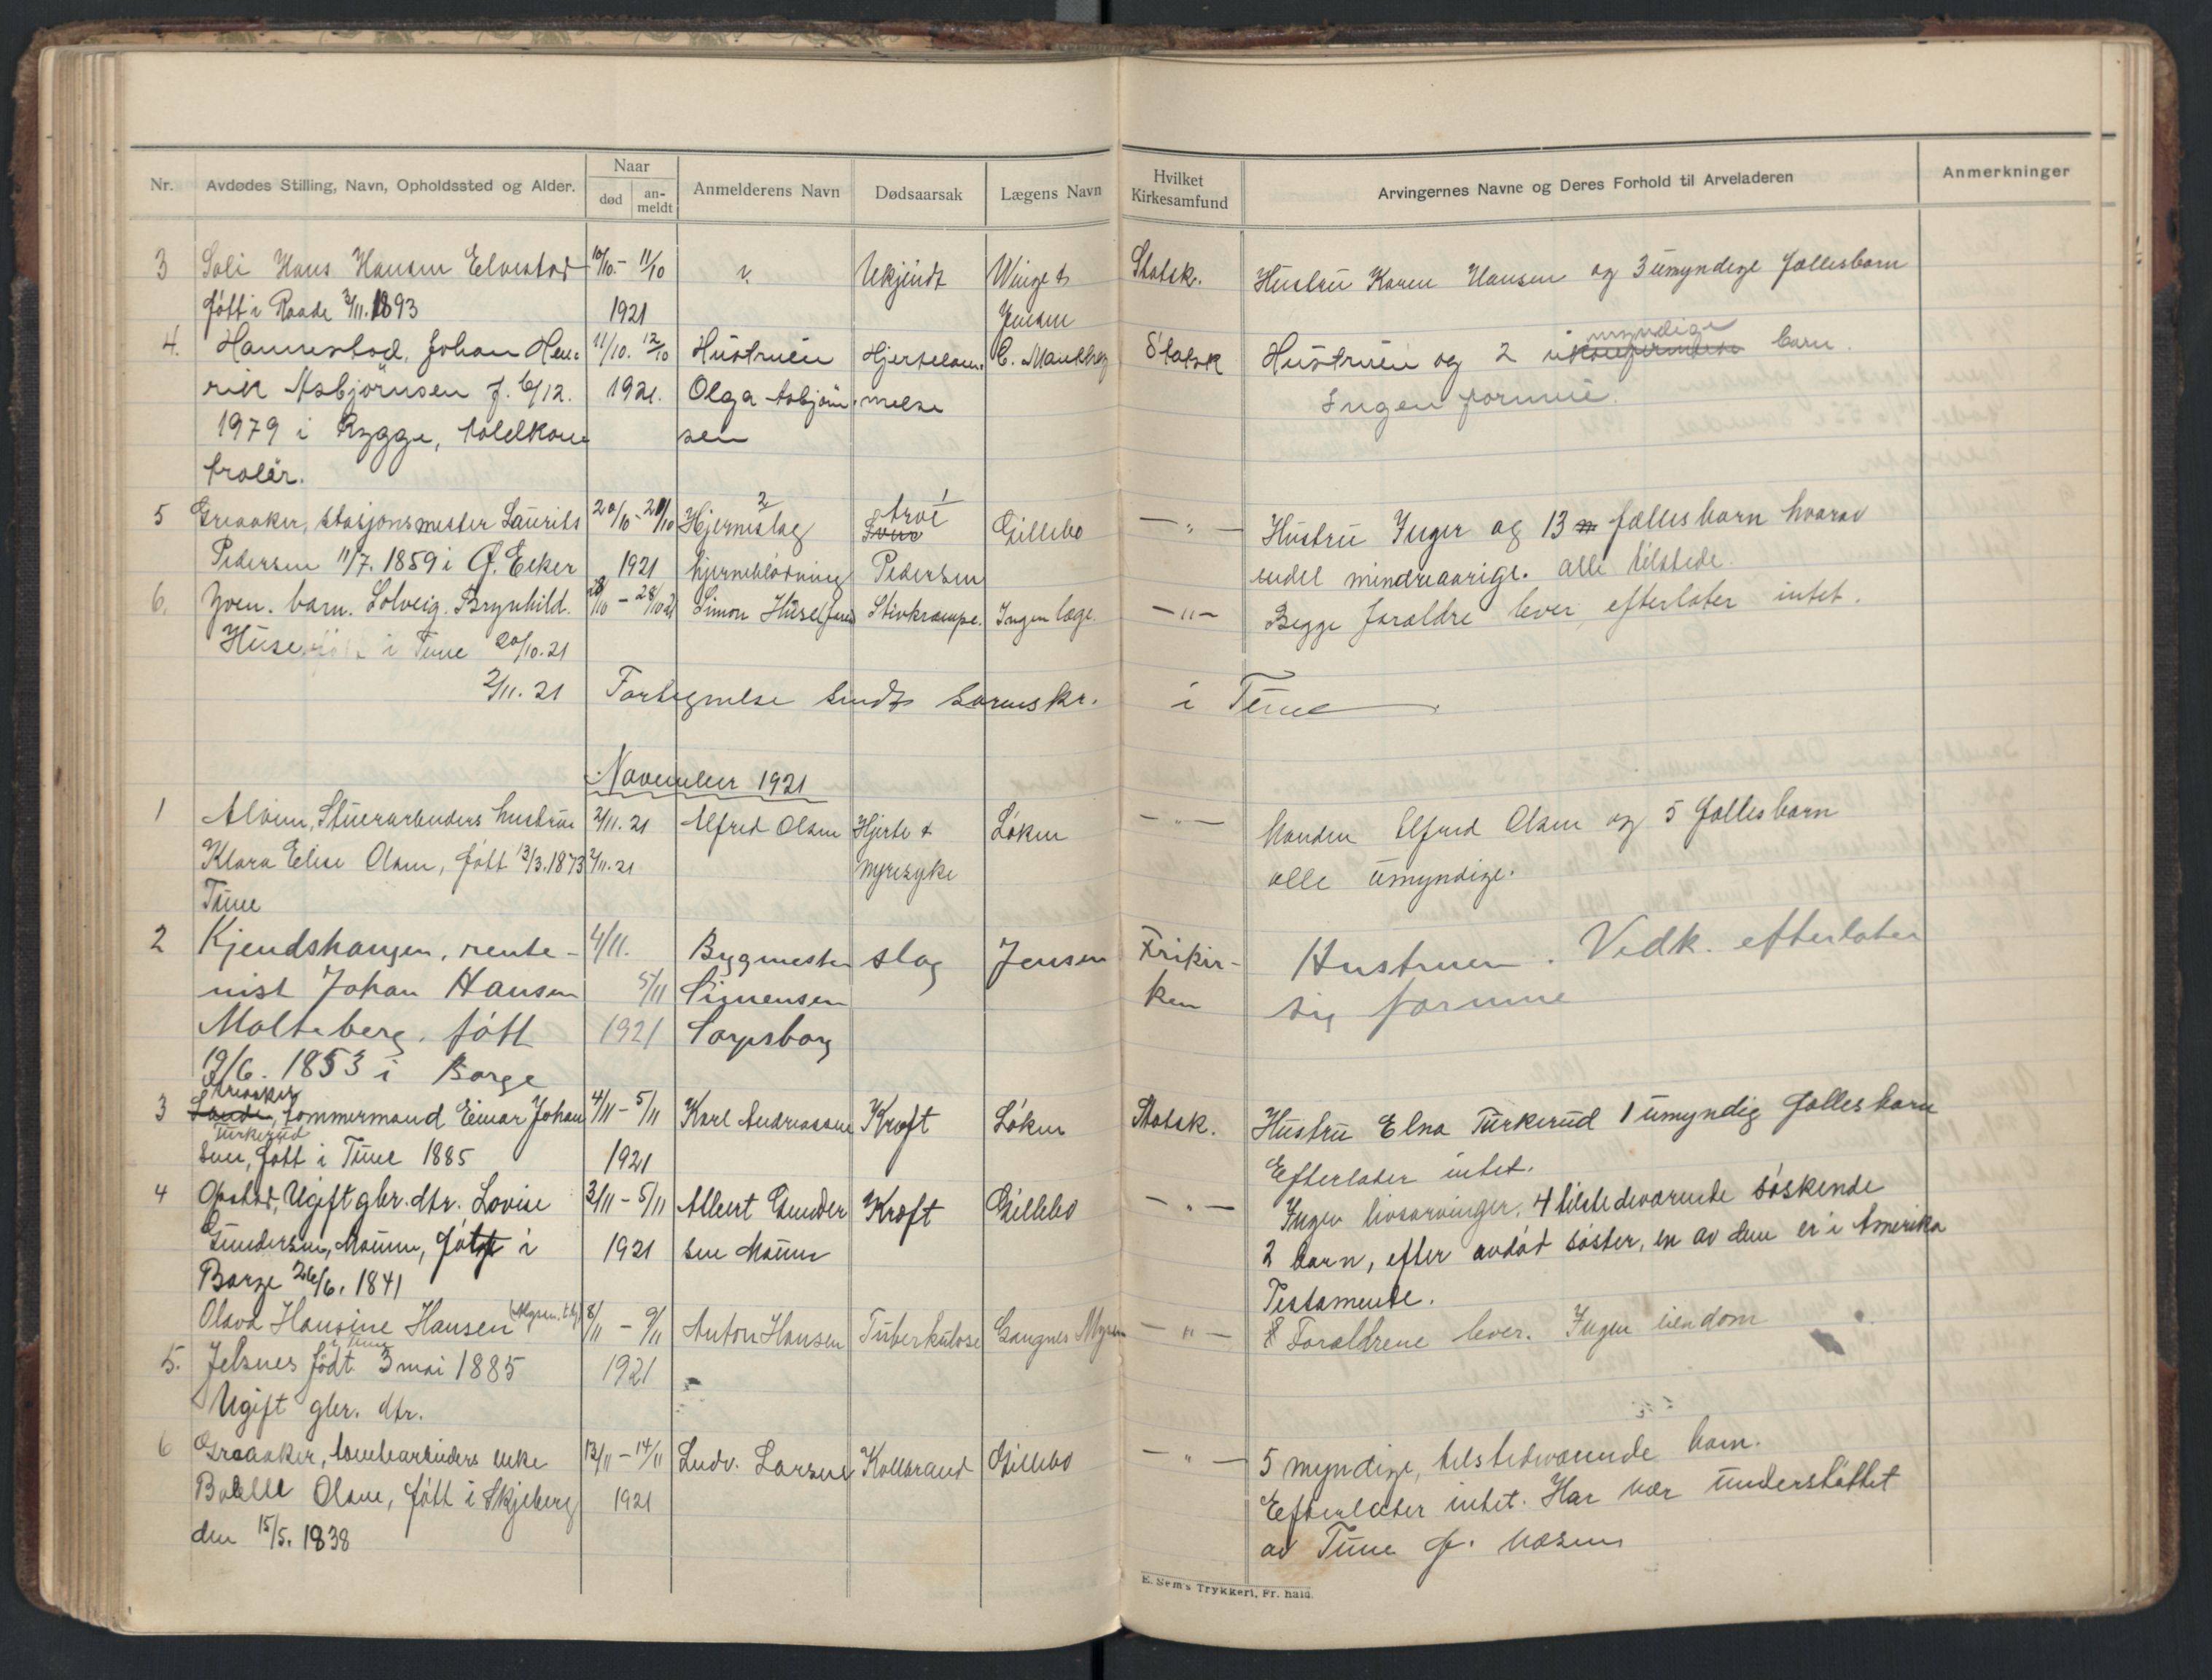 Nr.
Avdødes Stilling, Navn, Opholdssted og Alder.
Naar
død
an-
meldt
Anmelderens Navn
Dødsaarsak
Lægens Navn
Hvilket
Kirkesamfund
Arvingernes Navne og Deres Forhold til Arveladeren
Anmerkninger
3 Soli Hans Hansen Elvestad 10/10 - 11/10 Ukjendt Winge & Statsk. Hustru Karen Hansen og 3 umyndige fællesbarn
født i Raade 3/11. 1893 1921 Jensen
4. Hannestad, Johan Hen- 11/10. 12/10 Hustruen Hjertelam- C. Statsk Hustruen og 2 myndige barn.
rik Asbjørnsen f. 6/12. 1921. Olga Asbjørn- melse Ingen formue.
1979 i Rygge, toldkon- sen
trolør.
5 Greaaker, stasjonsmester Laurits 20/10 - 21/10 Hjerneslag 2 Gillebo - " - Hustru Inger og 13 fællesbarn hvorav
Pedersen 11/7. 1859 i Ø. Eeker 1921 hjerneblødning Pedersen endel mindreaarige. alle tilstede.
6. Gven. barn. Solveig. Brynhild. 28/10 - 28/10 21 Simon Huse Stivkrampe. Ingen læge. - " - Begge forældre lever, efterlater intet.
Huse i Tune 20/10. 21
2/11. 21 Fortegnelse sendt sorenskr. i Tune
November 1921
1 Alvim, Stuerarbeiders hustru 2/11. 21 Alfred Olsen Hjerte & Løken - " - Manden Alfred Olsen og 5 fællesbarn
Klara Elise Olsen, født 13/3. 1873 2/11. 21 nyresyke alle umyndige.
Tune
2 Kjendshaugen, rente- 4/11. Bygmester slag Jensen Frikir- Hustruen. Vedk. efterlater
nist Johan Hansen 5/11 Simensen ken sig formue
Molteberg, født 1921 Sarpsborg
19/6. 1853 i Borge
Greaaker
3 Sande, tømmermand Einar Johan 4/11 - 5/11 Karl Andreassen Kræft Løken Statsk. Hustru Elna Turkerud 1 umyndig fællesbarn
Turkerud
sen, født i Tune 1885 1921 Efterlater intet.
4 Opstad, Ugift gbr. dtr. Lovise 3/11 - 5/11 Albert Gunder Kræft Gillebo - " - Ingen livsarvinger. 4 tilstedeværende søskende
Gundersen, Moum, født i 1921 sen Moum 2 barn, efter avdød søster, en av dem er i Amerika
Borge 26/6. 1841 Testamente.
Olava Hansine Hansen 8/11 - 9/11 Anton Hansen Tuberkulose Gangnes Mysen - " - Forældrene lever. Ingen eiendom
i Tune
5. Jelsnes født 3 mai 1885 1921
Ugift gbr. dtr.
6 Greaaker, tomtearbeiders enke 13/11 - 14/11 Ludv. Larsen Kolbrand Gillebo - " - 5 myndige, tilstedeværende barn.
Olsen, født i Skjeberg 1921 Efterlater intet. Har vær understøttet
den 15/5. 1838 av Tune f. væsen
E. Sem's Trykkeri, Fr. hald.